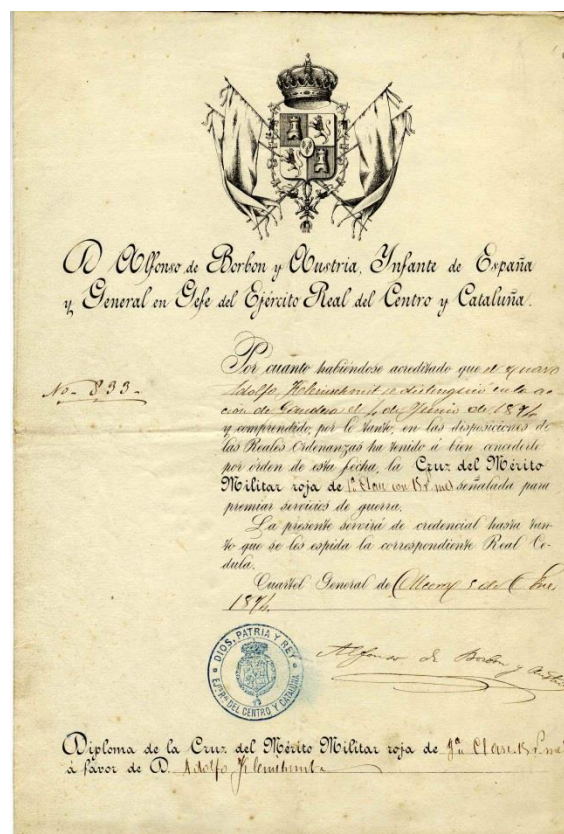 D. Alfonso de Borbon y Austria, Infante de España
y General en Gefe del Ejército Real del Centro y Cataluña.
No. 833.
Por cuanto habiéndose acreditado que el
Adolfo se distinguió en la ac-
cion de Gandesa el 4 de Junio de 1874
y comprendido, por lo tanto, en las disposiciones de
las Reales Ordenanzas ha tenido á bien concederle
por órden de esta fecha, la Cruz del Mérito
Militar roja de 1ª Clase con señalada para
premiar servicios de guerra.
La presente servirá de credencial hasta tan-
to que se les espida la correspondiente Real Cé-
dula.
Cuartel General de
1874.
DIOS, PATRIA Y REY
EJTO RL DEL CENTRO Y CATALUÑA
Alfonso de Borbon y Austria
Diploma de la Cruz del Mérito Militar roja de 1ª Clase
á favor de D. Adolfo